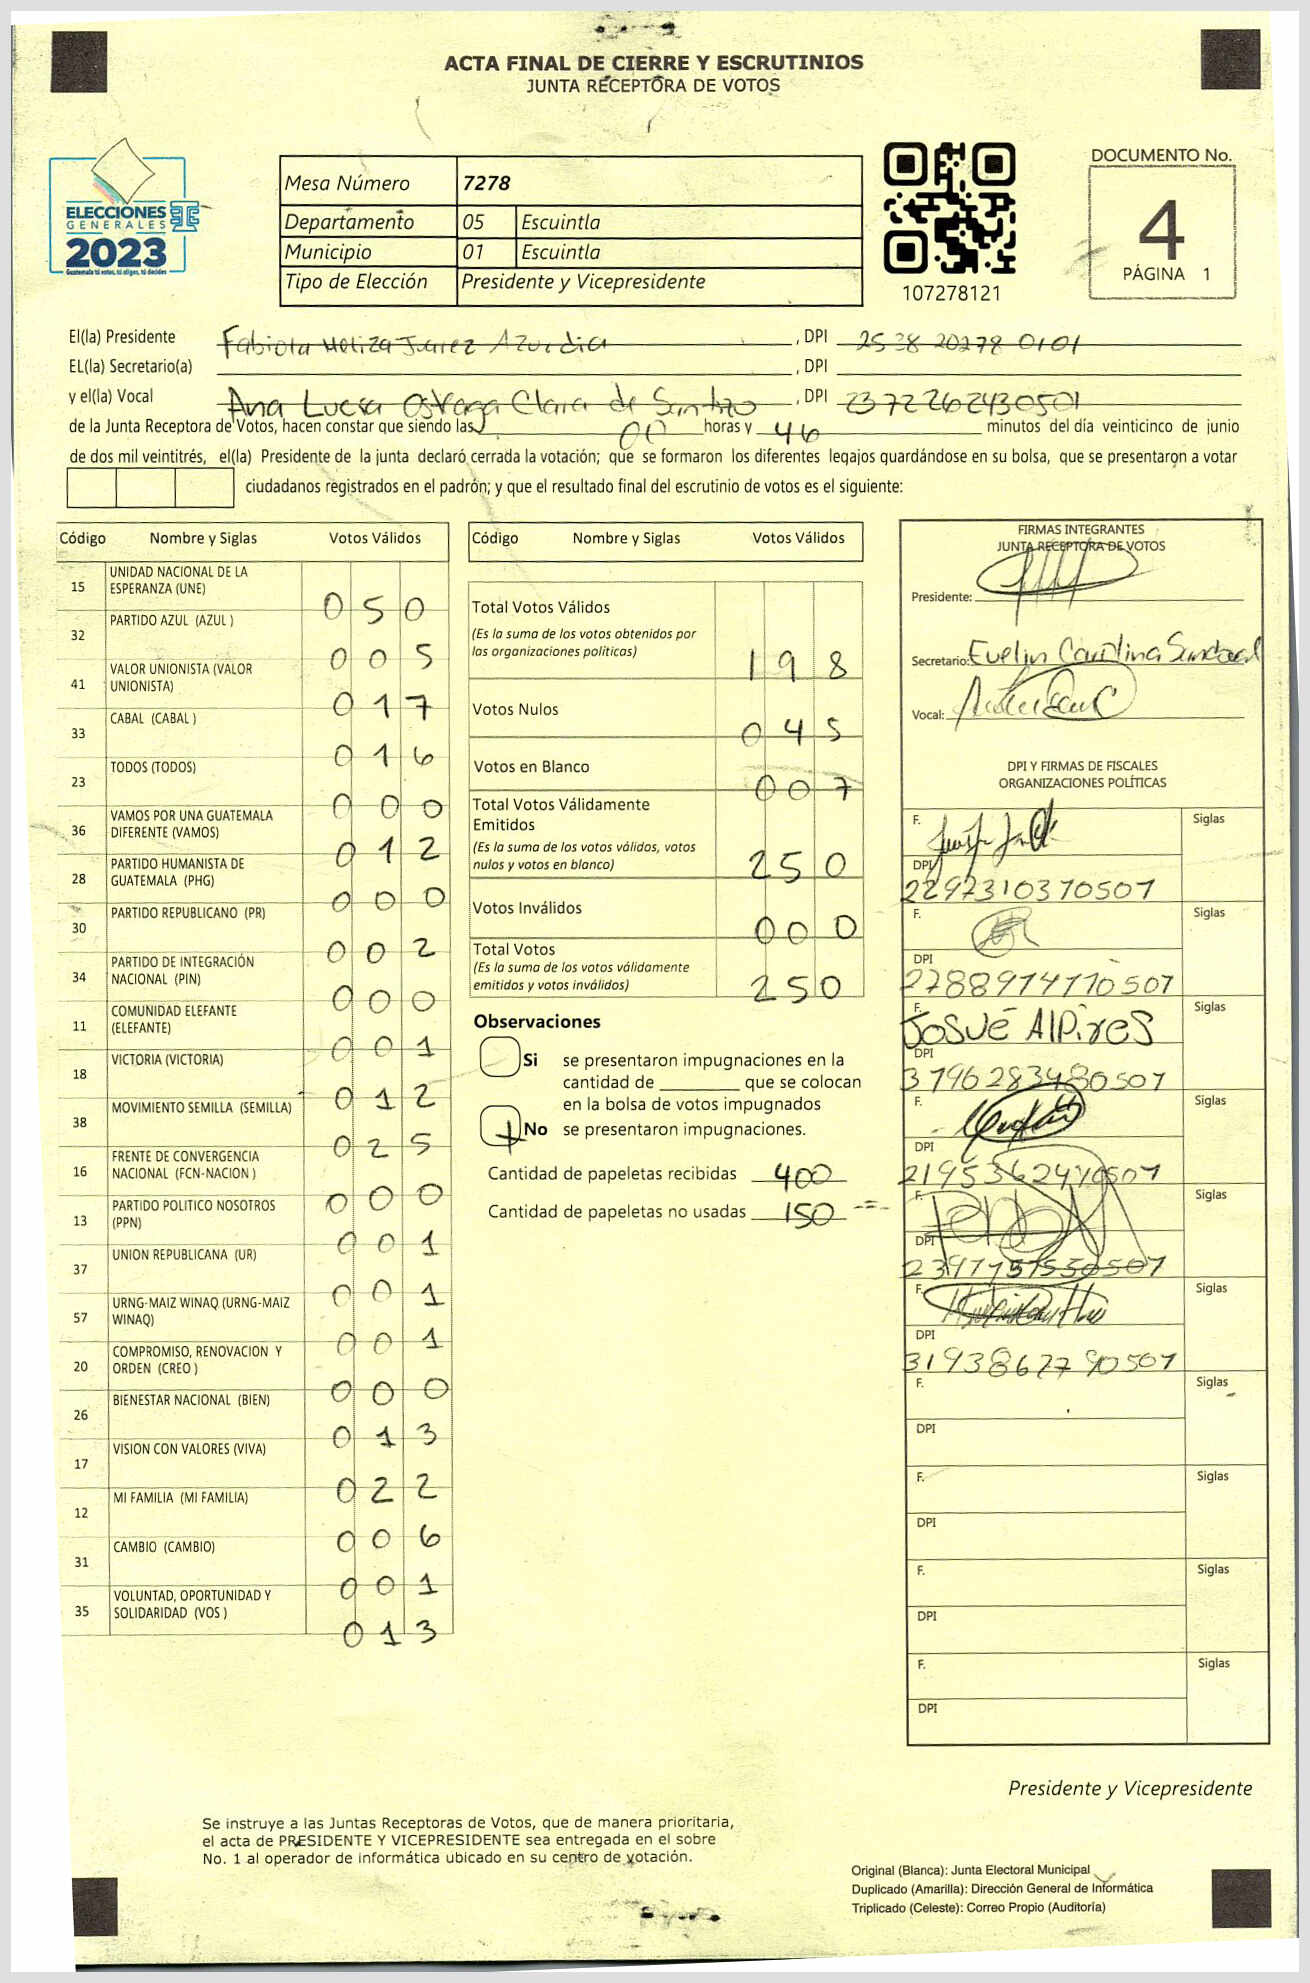 ACTA FINAL DE CIERRE Y ESCRUTINIOS
JUNTA RECEPTORA DE VOTOS
ELECCIONES
GENERALES
2023
Guatemala tú votas, tú eliges, tú decides
Mesa Número 7278
Departamento 05 Escuintla
Municipio 01 Escuintla
Tipo de Elección Presidente y Vicepresidente
107278121
DOCUMENTO No.
4
PÁGINA 1
El(la) Presidente Fabiola Meliza Juarez Azurdia , DPI 2538 20278 0101
EL(la) Secretario(a) , DPI
y el(la) Vocal Ana Lucsa Clara de , DPI 2372262430501
de la Junta Receptora de Votos, hacen constar que siendo las 00 horas y 46 minutos del día veinticinco de junio
de dos mil veintitrés, el(la) Presidente de la junta declaró cerrada la votación; que se formaron los diferentes legajos guardándose en su bolsa, que se presentaron a votar
ciudadanos registrados en el padrón; y que el resultado final del escrutinio de votos es el siguiente:
Código Nombre y Siglas Votos Válidos
15 UNIDAD NACIONAL DE LA ESPERANZA (UNE) 050
32 PARTIDO AZUL (AZUL ) 005
41 VALOR UNIONISTA (VALOR UNIONISTA) 017
33 CABAL (CABAL ) 016
23 TODOS (TODOS) 000
36 VAMOS POR UNA GUATEMALA DIFERENTE (VAMOS) 012
28 PARTIDO HUMANISTA DE GUATEMALA (PHG) 000
30 PARTIDO REPUBLICANO (PR) 002
34 PARTIDO DE INTEGRACIÓN NACIONAL (PIN) 000
11 COMUNIDAD ELEFANTE (ELEFANTE) 001
18 VICTORIA (VICTORIA) 012
38 MOVIMIENTO SEMILLA (SEMILLA) 025
16 FRENTE DE CONVERGENCIA NACIONAL (FCN-NACION ) 000
13 PARTIDO POLITICO NOSOTROS (PPN) 001
37 UNION REPUBLICANA (UR) 001
57 URNG-MAIZ WINAQ (URNG-MAIZ WINAQ) 001
20 COMPROMISO, RENOVACION Y ORDEN (CREO ) 000
26 BIENESTAR NACIONAL (BIEN) 013
17 VISION CON VALORES (VIVA) 022
12 MI FAMILIA (MI FAMILIA) 006
31 CAMBIO (CAMBIO) 001
35 VOLUNTAD, OPORTUNIDAD Y SOLIDARIDAD (VOS ) 013
Código Nombre y Siglas Votos Válidos
Total Votos Válidos
(Es la suma de los votos obtenidos por
las organizaciones políticas) 198
Votos Nulos 045
Votos en Blanco 007
Total Votos Válidamente
Emitidos
(Es la suma de los votos válidos, votos
nulos y votos en blanco) 250
Votos Inválidos 000
Total Votos
(Es la suma de los votos válidamente
emitidos y votos inválidos) 250
Observaciones
Si se presentaron impugnaciones en la
cantidad de ________ que se colocan
en la bolsa de votos impugnados
No se presentaron impugnaciones.
Cantidad de papeletas recibidas 400
Cantidad de papeletas no usadas 150
FIRMAS INTEGRANTES
JUNTA RECEPTORA DE VOTOS
Presidente:
Secretario: Evelin Carolina Sandoval
Vocal:
DPI Y FIRMAS DE FISCALES
ORGANIZACIONES POLÍTICAS
F. Siglas
DPI
2292310370507
F. Siglas
DPI
F. Siglas
JOSUÉ AlPireS
DPI
3796283480507
F. Siglas
DPI
F. Siglas
DPI
F. Siglas
DPI
F. Siglas
DPI
F. Siglas
DPI
F. Siglas
DPI
F. Siglas
DPI
Presidente y Vicepresidente
Se instruye a las Juntas Receptoras de Votos, que de manera prioritaria,
el acta de PRESIDENTE Y VICEPRESIDENTE sea entregada en el sobre
No. 1 al operador de informática ubicado en su centro de votación.
Original (Blanca): Junta Electoral Municipal
Duplicado (Amarilla): Dirección General de Informática
Triplicado (Celeste): Correo Propio (Auditoría)